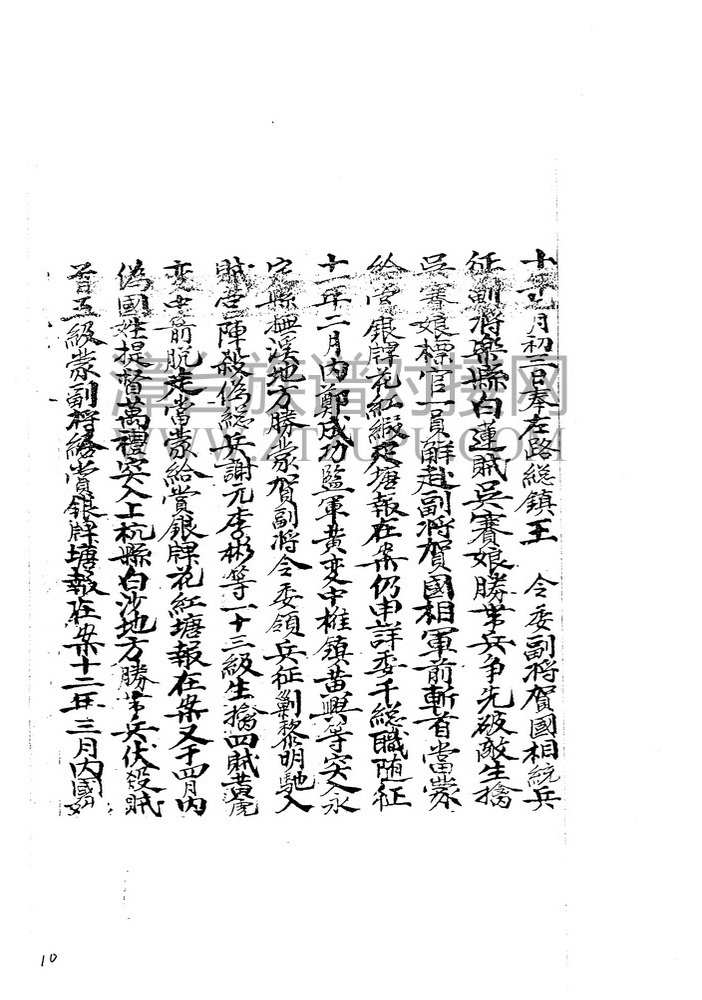 十年九月初三日奉左路総鎮王　令委副將賀國相統兵
征剿將樂縣白蓮賊吳賽娘勝率兵爭先破敵生擒
吳賽娘標官一員解赴副將賀國相軍前斬首當蒙
給賞銀牌花紅緞疋塘報在案仍申詳委千総職随征
十一年二月內鄭成功監軍黄変中椎鎮黄興等突入永
定縣撫溪地方勝蒙賀副將令委領兵征剿黎明馳入
賊営陣殺偽総兵謝元李彬等一十三級生擒四賊黄虎
変中前脱走當蒙給賞銀牌花紅塘報在案又于四月內
偽國姓提督萬禮突入上杭縣白沙地方勝率兵伏殺賊
首五級蒙副將給賞銀牌塘報在案十二年三月內國姓
漳台族谱对接网
ZTZUPU.COM
10